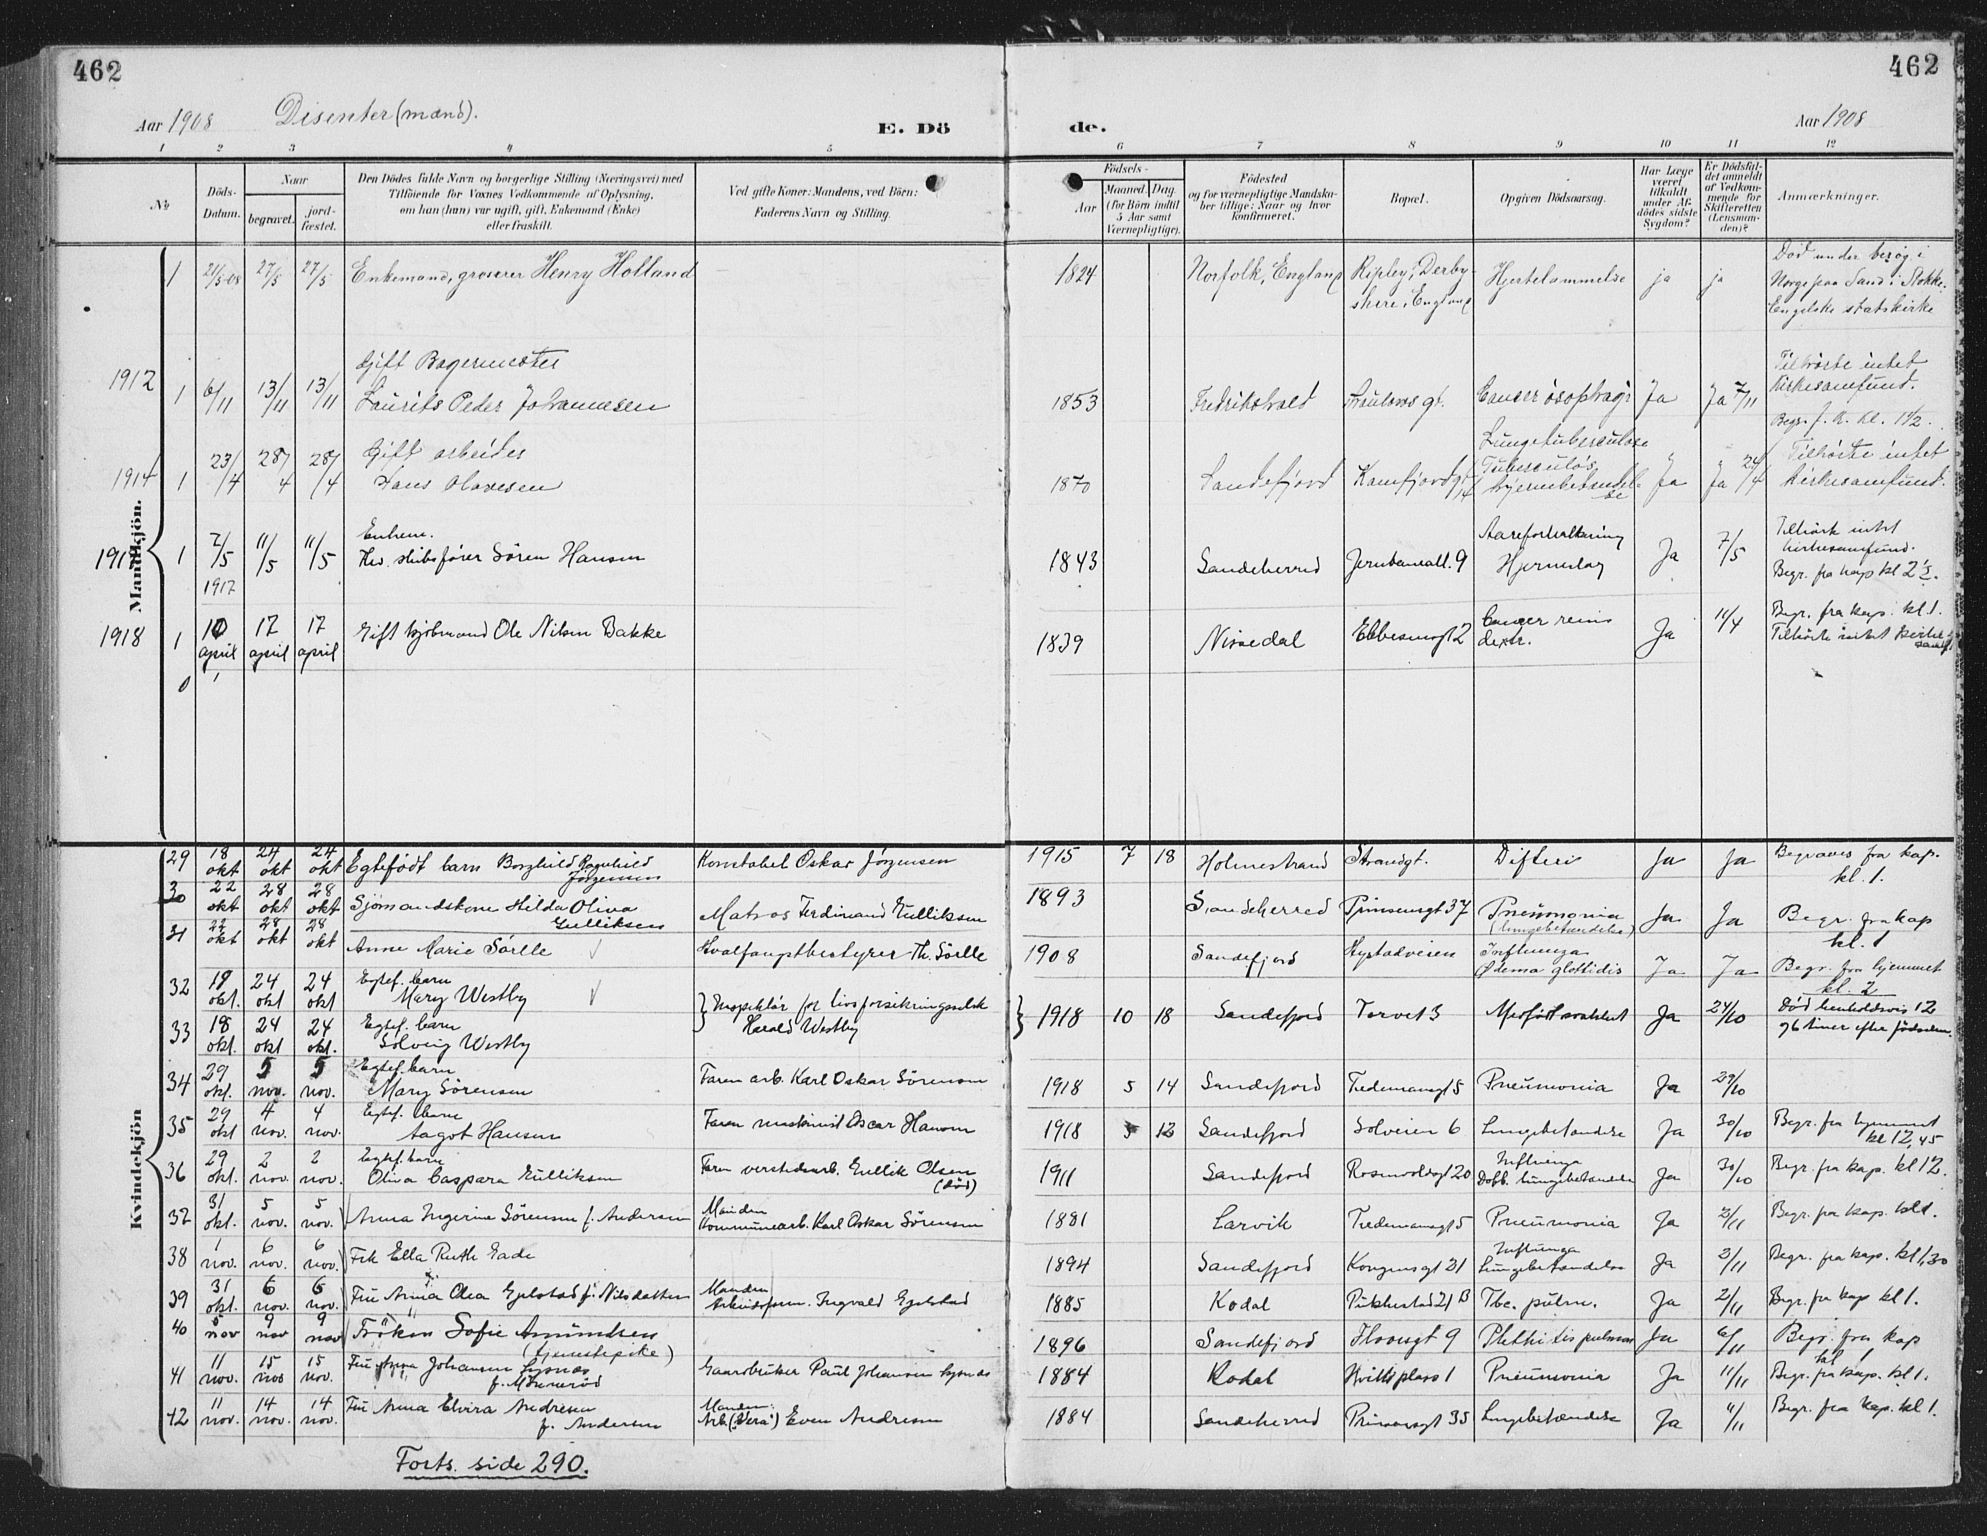 462
462
Aar 1908 Disenter (mænd).
E. Dö
de.
Aar 1908
1 2 3 4 5 6 7 8 9 10 11 12
№
Döds-Datum.
Naar
begravet.
jord-fæstet.
Den Dödes fulde Navn og borgerlige Stilling (Næringsvei) med
Tilföiende for Voxnes Vedkommende af Oplysning,
om han (hun) var ugift, gift, Enkemand (Enke)
eller fraskilt.
Ved gifte Koner: Mandens, ved Börn:
Faderens Navn og Stilling.
Födsels-
Aar
Maaned. Dag
(for Börn indtil
5 Aar samt
Værnepligtige).
Födested
og for værnepligtige Mandska-
ber tillige: Naar og hvor
konfirmeret.
Bopæl.
Opgiven Dödsaarsag.
Har Læge
været
tilkaldt
under Af-
dödes sidste
Sygdom?
Er Dödsfal-
det anmeldt
af Vedkom-
mende for
Skifteretten
(Lensman-
den)?
Anmærkninger.
Mandkjön.
1 21/5-08 27/5 27/5 Enkemand, grosserer Henry Holland 1824 Norfolk, England Ripley, Derby-
shere, England Hjertelammelse ja ja Död under besøg i
Norge paa Sand i Stokke.
Engelske statskirke
1912 1 6/11 13/11 13/11 Gift Bagermester
Laurits Peder Johannesen 1853 Fredrikshald Ja Ja 7/11 Tilhörte intet
Kirkesamfund.
1914 1 23/4 28/4 28/4 Gift arbeider
Hans Olavesen 1870 Sandefjord Lungetuberculose
Tuberculös
Ja Ja 24/4 Tilhörte intet
Kirkesamfund.
1 7/5 1917 11/5 11/5 Enkem.
skibsfører Sören Hansen 1843 Sandeherred Jernbaneall. 9 Aareforkalkning
Hjerneslag Ja 7/5 Tilhörte intet
kirkesamfund.
Begr. fra kap kl 2 ½.
1918 1 10 april 17 april 17 april Gift kjöbmand Ole Nilsen Bakke 1839 Nissedal Cancer renis
dextr. Ja 11/4 Begr. fra kap. kl. 1.
Tilhörte intet kirke-
samf.
0
Kvindekjön
29 18 okt 24 okt 24 okt Egtefödt barn Borghild Ragnhild
Jørgensen Konstabel Oskar Jørgensen 1915 7 18 Holmestrand Strandgt. Difteri Ja Ja Begraves fra kap.
kl. 1.
30 22 okt 28 okt 28 okt Sjömandskone Hilda Oliva
Gulliksen Matros Ferdinand Gulliksen 1893 Sandeherred Prinsensgt 37 Pneumonia
(lungebetændelse) Ja Ja Begr. fra kap
kl. 1
31 22 okt 28 okt 28 okt Anne Marie Sörlle Hvalfangstbestyrer Th. Sörlle 1908 Sandefjord Hystadveien Influenza
Ødema glottidis Ja Ja Begr. fra hjemmet
kl. 2
32 18 okt. 24 okt 24 okt Egtef. barn
Mary Westby Inspektör for livsforsikringsselsk
Harald Westby 1918 10 18 Sandefjord Torvet 3 Ja 24/10 Död henholdsvis 12
og 6 timer efter födselen.
33 18 okt. 24 okt 24 okt. Egtef. barn
Solveig Westby
34 29 okt. 5 nov. 5 nov. Egtef. barn
Mary Sörensen Faren arb. Karl Oskar Sörensen 1918 5 14 Sandefjord Tredemansgt 5 Pneumonia Ja 29/10
35 29 okt 4 nov. 4 nov. Egtef. barn
Aagot Hansen Faren maskinist Oscar Hansen 1918 5 12 Sandefjord Solveien 6 Lungebetændelse Ja 30/10 Begr. fra hjemmet
kl 12,45
36 29 okt. 2 nov. 2 nov. Egtef. barn
Oliva Caspara Gulliksen Faren verkstedsarb. Gullik Olsen
(död) 1911 Sandefjord Rosenvoldsgt 20 Influenza
Dobb. lungebetændelse Ja 30/10 Begr. fra kap. kl 12.
37 31 okt. 5 nov. 5 nov. Anna Ingerine Sörensen f. Andersen Manden
Kommunearb. Karl Oskar Sörensen 1881 Larvik Tredemansgt 5 Pneumonia Ja 2/11 Begr. fra kap. kl 1.
38 1 nov. 6 nov. 6 nov. Frk Ella Ruth Gade 1894 Sandefjord Kongensgt 21 Influenza
Lungebetændelse Ja 2/11 Begr. fra kap. kl 1,30
39 31 okt. 6 nov. 6 nov. Fru Anna Olea Gjelstad f. Nilsdatter Manden
Ingvald Gjelstad 1885 Kodal Pukkestad 21 B Tbc. pulm. Ja 2/11 Begr. fra kap kl 1.
40 5 nov 9 nov 9 nov Fröken Sofie Amundsen
(tjenestepike) 1896 Sandefjord 9 Phthisis pulmon Ja 6/11 Begr. fra kap
kl. 1
41 11 nov. 15 nov 15 nov. Fru Anna Johansen Lysnæs
Gaardbruker Paul Johansen Lysnæs 1884 Kodal Hvidts plass 1 Pneumonia Ja 11/11 Begr. fra kap. kl 1.
42 11 nov. 14 nov. 14 nov. Fru Anna Elvira Andresen
f. Andersen Manden:
Arb. ("Vera") Even Andresen 1884 Sandeherred Prinsensgt 35 Lungebetændelse Ja 11/11 Begr. fra kap. kl 1.
Forts. side 290.